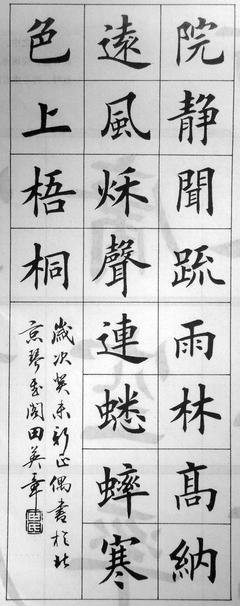 院静聞疏雨林髙納
遠風秋聲連蟋蟀寒
色上梧桐
歲次癸未新正偶書於北
京琴閣田英章